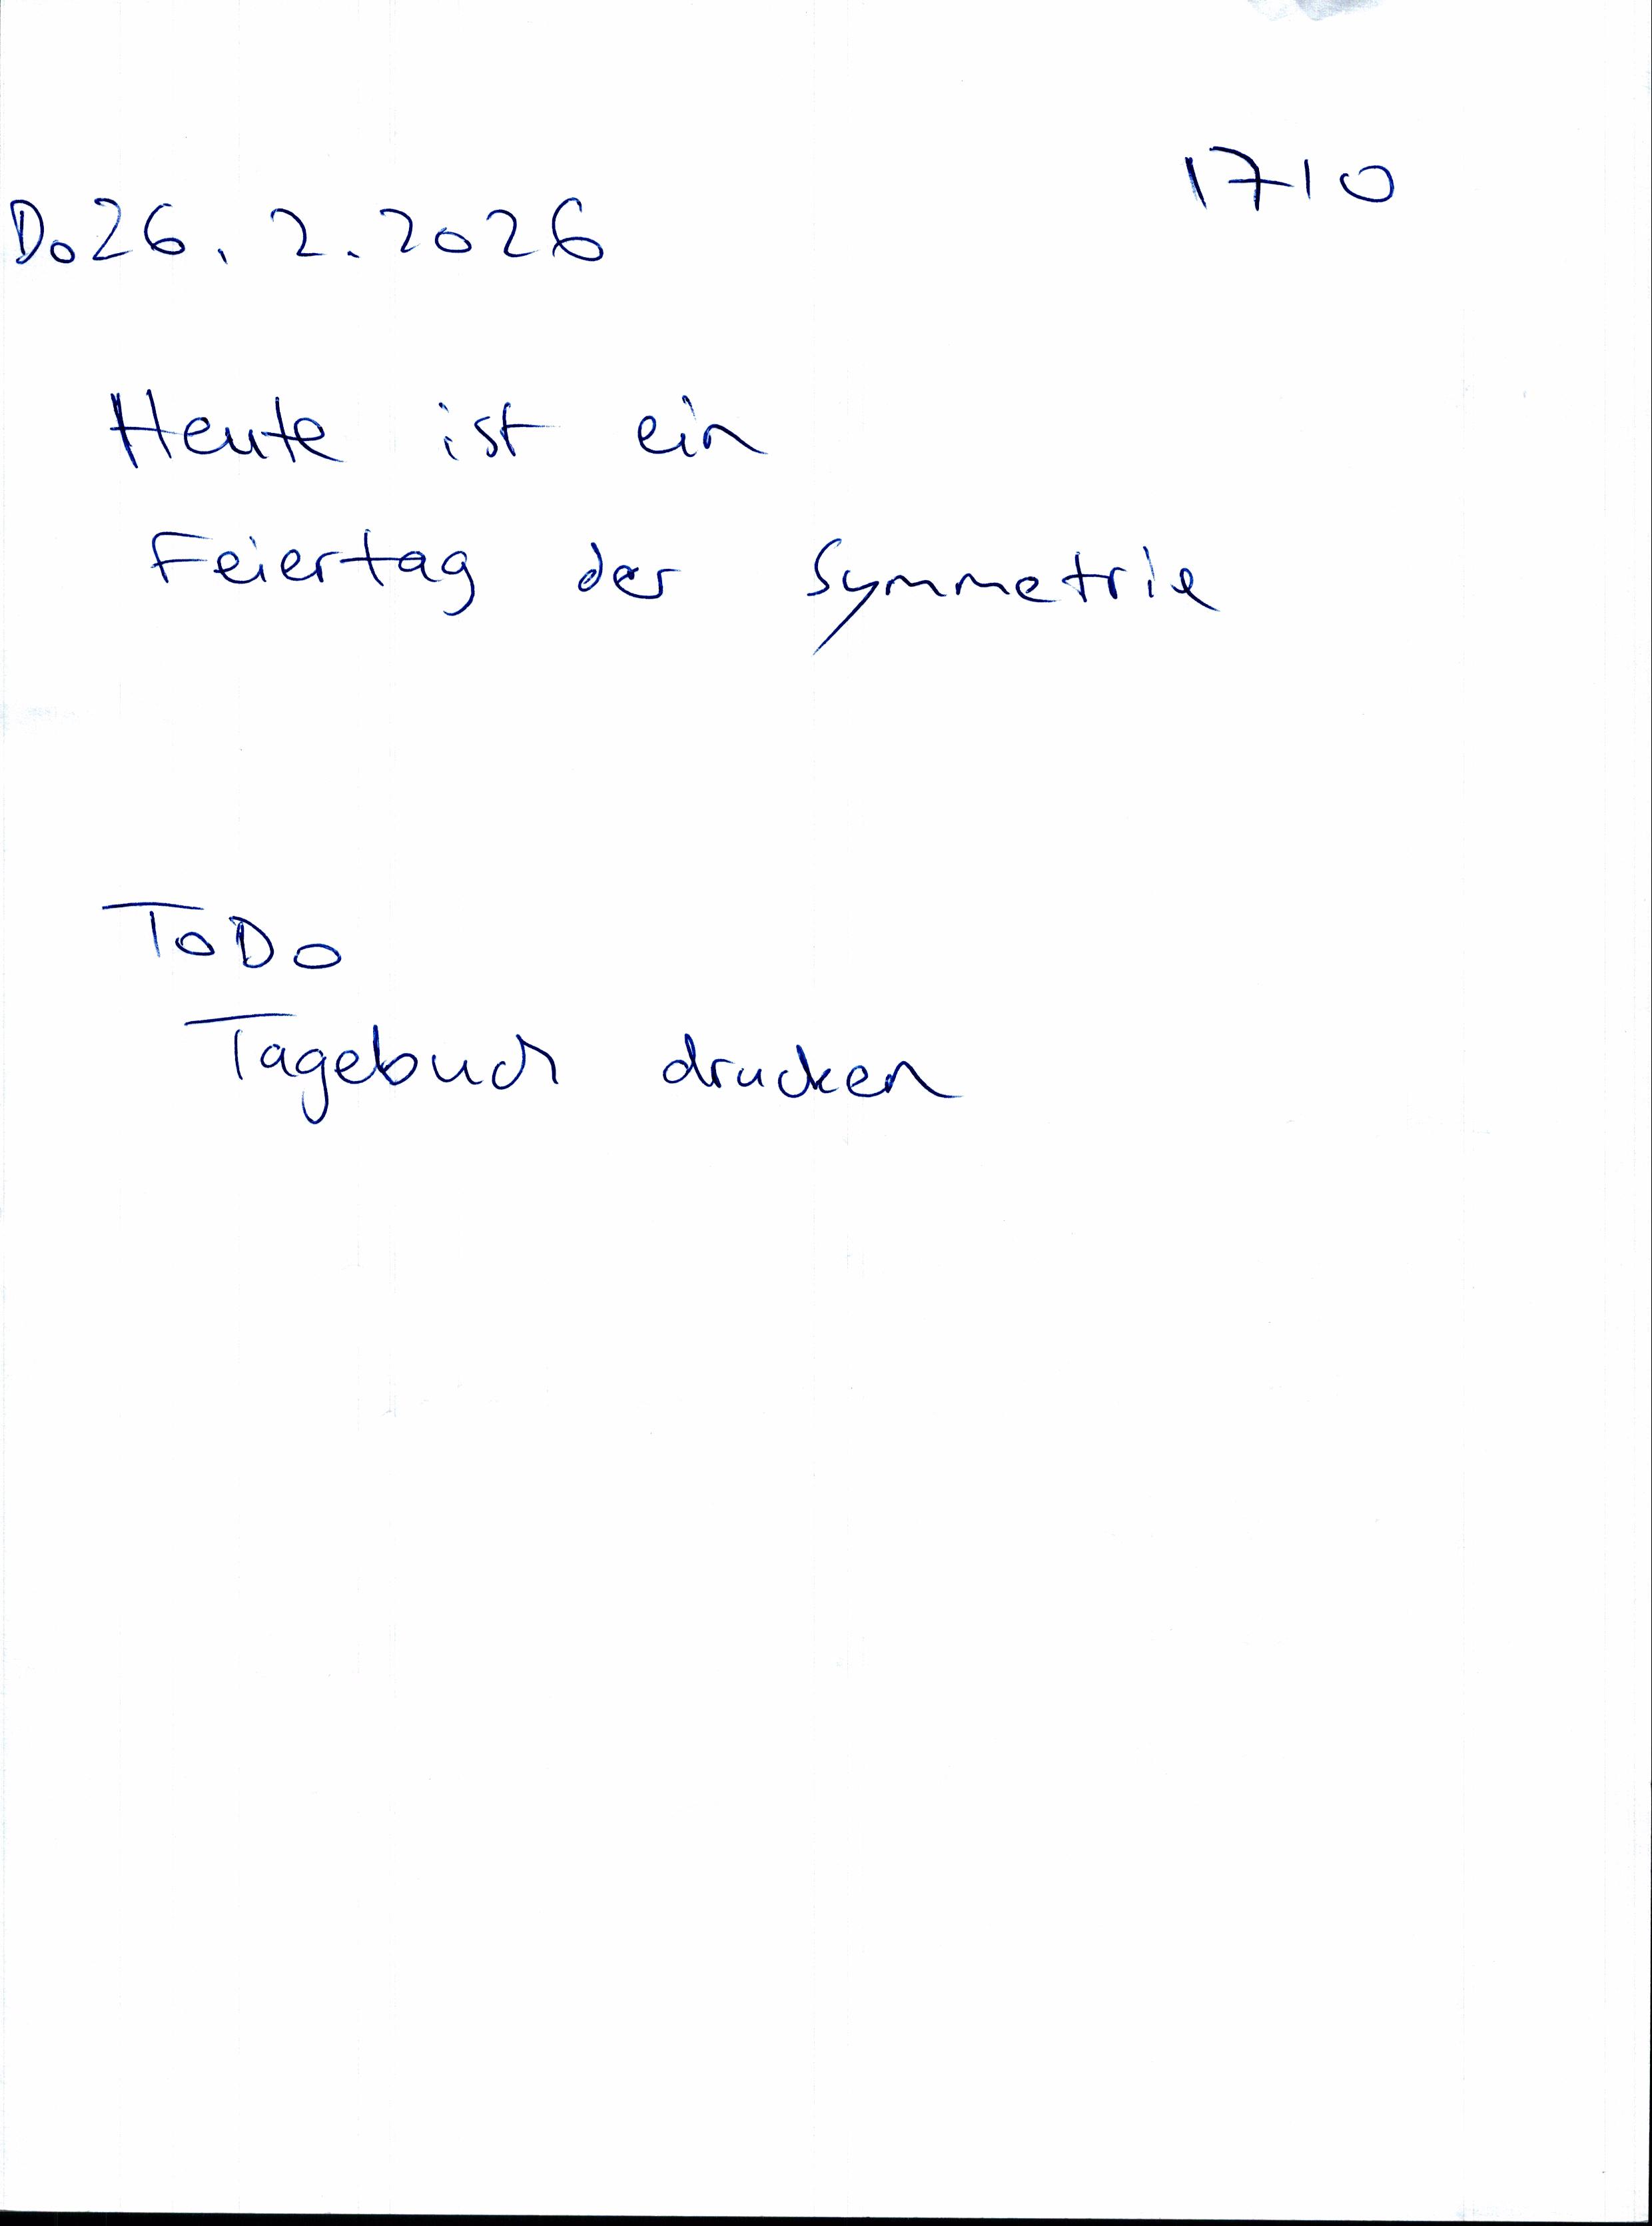 1710
Do 26. 2. 2026
Heute ist ein
Feiertag der Symmetrie
ToDo
Tagebuch drucken